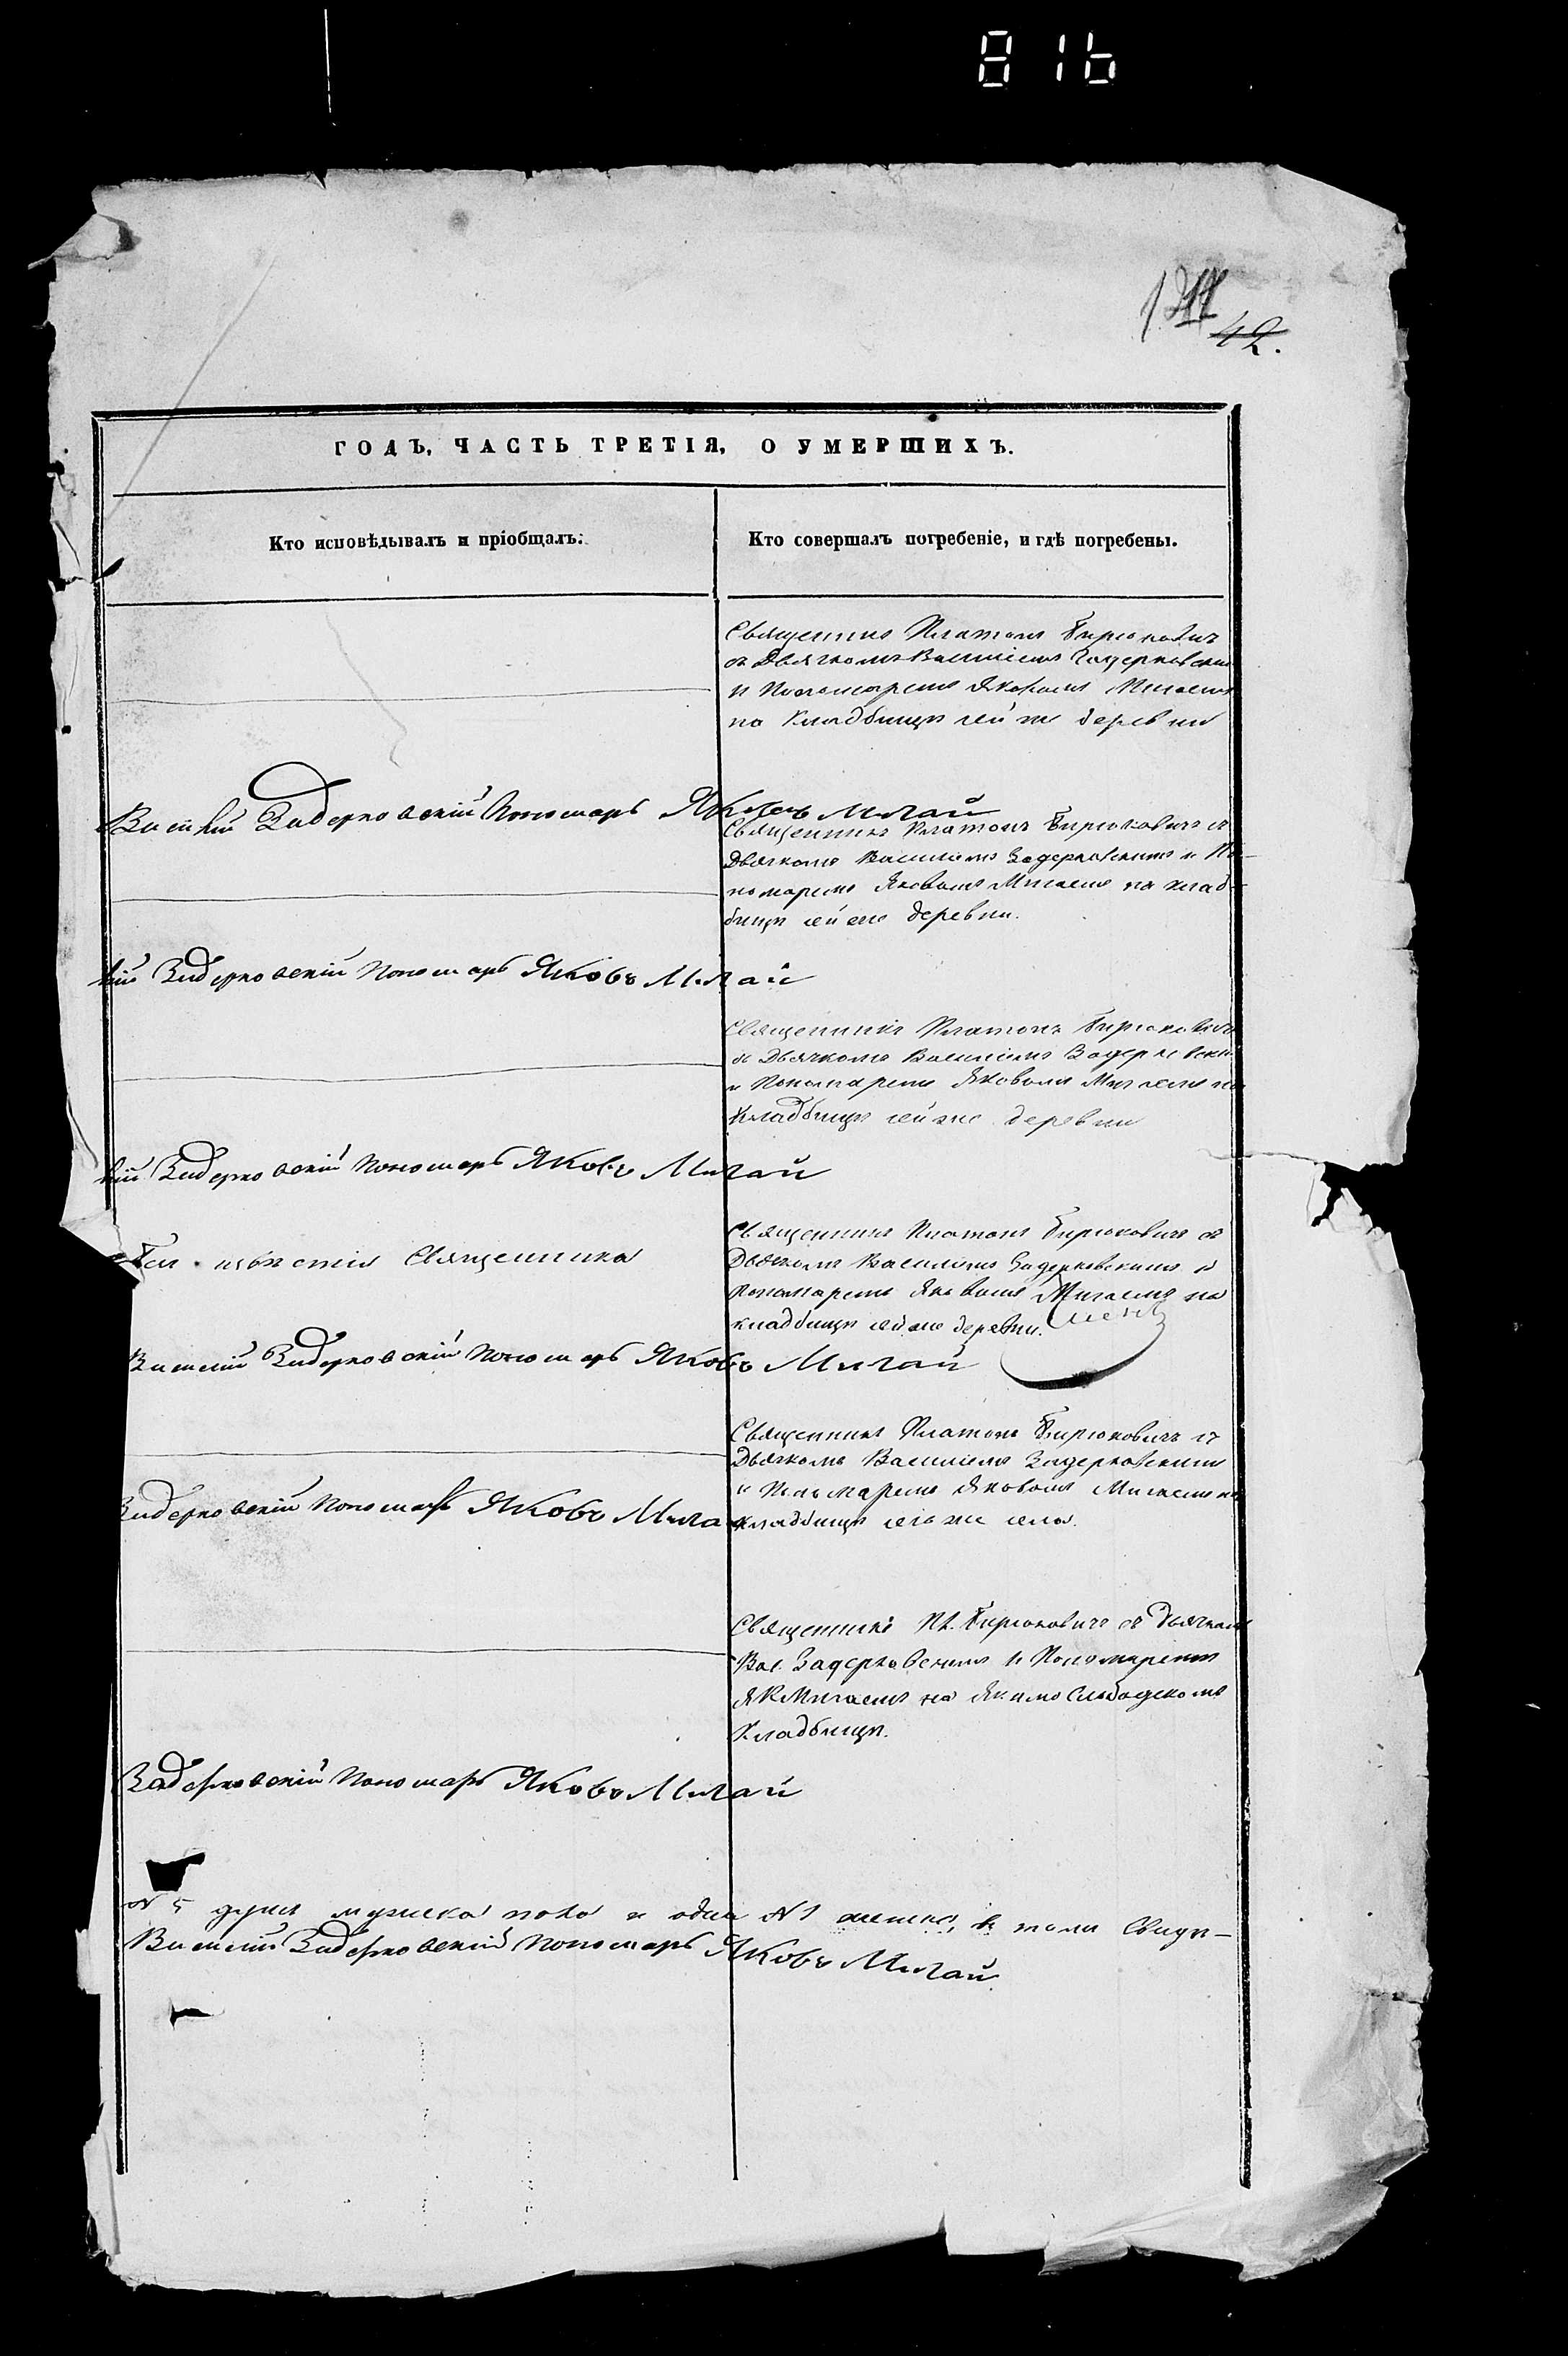 816
42.
ГОДЪ, ЧАСТЬ ТРЕТІЯ, О УМЕРШИХЪ.
Кто исповѣдывалъ и пріобщалъ.
Кто совершалъ погребеніе, и гдѣ погребены.
Священникъ Платонъ Бирюковичъ
съ Дьячкомъ Василіемъ Задерковским
и Пономаремъ Яковомъ Мигаемъ
на Кладбищѣ сей же деревни
Василій Задерковскій Пономарь Яковъ Мигай
Священникъ Платонъ Бирюковичъ съ
Дьячкомъ Василіемъ Задерковскимъ и По-
номаремъ Яковомъ Мигаемъ на клад-
бищѣ сей же деревни.
лій Задерковскій Пономарь Яковъ Мигай
Священникъ Платонъ Бирюковичъ
съ Дьячкомъ Василіемъ Задерковски
и Пономаремъ Яковомъ Мигаемъ на
Кладбищѣ сей же деревни
лій Задерковскій Пономарь Яковъ Мигай
Без извѣстія Священника
Священникъ Платонъ Бирюковичъ съ
Дьячкомъ Василіемъ Задерковскимъ и
Пономаремъ Яковомъ Мигаемъ на
кладбищѣ сей же деревни.
Василій Задерковскій Пономарь Яковъ Мигай
Священникъ Платонъ Бирюковичъ съ
Дьячкомъ Василіемъ Задерковскимъ
и Пономаремъ Яковомъ Мигаемъ на
кладбищѣ сего же села.
Задерковскій Пономарь Яковъ Мигай
Священникъ Пл. Бирюковичъ съ Дьячкомъ
Вас. Задерковскимъ и Пономаремъ
Як Мигаемъ на Якимо Слободскомъ
Кладбищѣ.
Задерковскій Пономарь Яковъ Мигай
№ 5 душъ мужеска пола и одна №1 женска, в томъ Свидѣ-
Василій Задерковскій Пономарь Яковъ Мигай